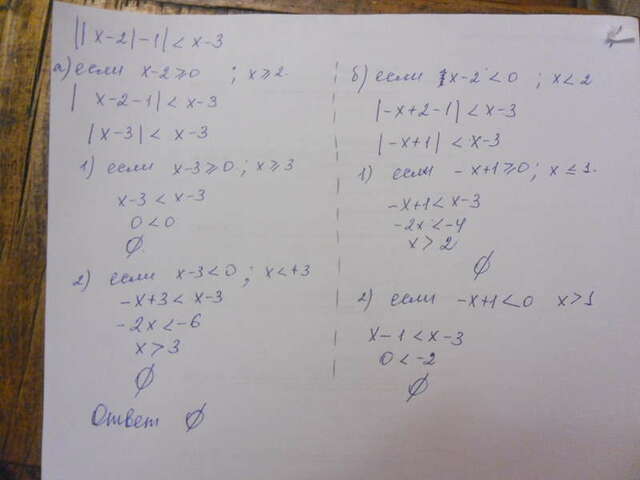 ||x-2|-1| < x-3
а) если x-2≥0 ; x≥2
| x-2-1| < x-3
|x-3| < x-3
1) если x-3≥0; x≥3
x-3 < x-3
0 < 0
∅
2) если x-3<0; x<+3
-x+3 < x-3
-2x < -6
x > 3
∅
Ответ ∅
б) если x-2<0 ; x<2
|-x+2-1| < x-3
|-x+1| < x-3
1) если -x+1≥0; x≤1.
-x+1 < x-3
-2x < -4
x > 2
∅
2) если -x+1<0 x>1
x-1 < x-3
0 < -2
∅